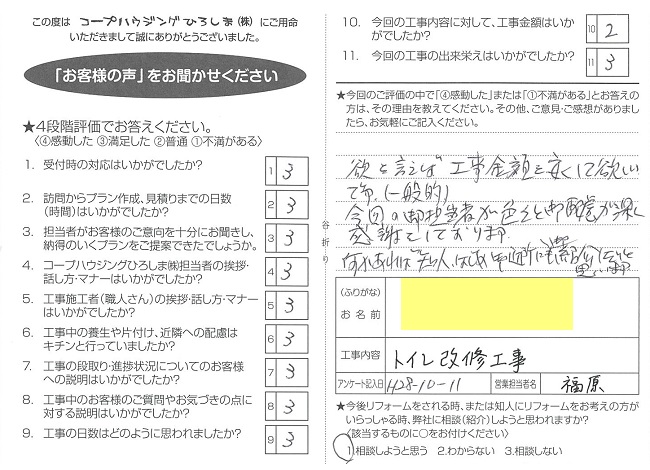 この度は コープハウジングひろしま(株) にご用命
いただきまして誠にありがとうございました。
「お客様の声」をお聞かせください
★4段階評価でお答えください。
〈④感動した ③満足した ②普通 ①不満がある〉
1. 受付時の対応はいかがでしたか? 1 3
2. 訪問からプラン作成、見積りまでの日数
(時間)はいかがでしたか? 2 3
3. 担当者がお客様のご意向を十分にお聞きし、
納得のいくプランをご提案できたでしょうか。 3 3
4. コープハウジングひろしま㈱担当者の挨拶・
話し方・マナーはいかがでしたか? 4 3
5. 工事施工者(職人さん)の挨拶・話し方・マナー
はいかがでしたか? 5 3
6. 工事中の養生や片付け、近隣への配慮は
キチンと行っていましたか? 6 3
7. 工事の段取り・進捗状況についてのお客様
への説明はいかがでしたか? 7 3
8. 工事中のお客様のご質問やお気づきの点に
対する説明はいかがでしたか? 8 3
9. 工事の日数はどのように思われましたか? 9 3
谷折り
10. 今回の工事内容に対して、工事金額はいか
がでしたか? 10 2
11. 今回の工事の出来栄えはいかがでしたか? 11 3
★今回のご評価の中で「④感動した」または「①不満がある」とお答え
の方は、その理由を教えてください。その他、ご意見・ご感想がありまし
たら、お気軽にご記入ください。
欲を言えば 工事金額を安くして欲しい
です.(一般的)
今回の御担当者が色々と御配慮が深く
感謝して(おります.
(ふりがな)
お名前
工事内容 トイレ改修工事
アンケート記入日 H28-10-11 営業担当者名 福原
★今後リフォームをされる時、または知人にリフォームをお考えの方が
いらっしゃる時、弊社に相談(紹介)しようと思われますか?
〈該当するものに○をお付けください〉
1.相談しようと思う 2.わからない 3.相談しない